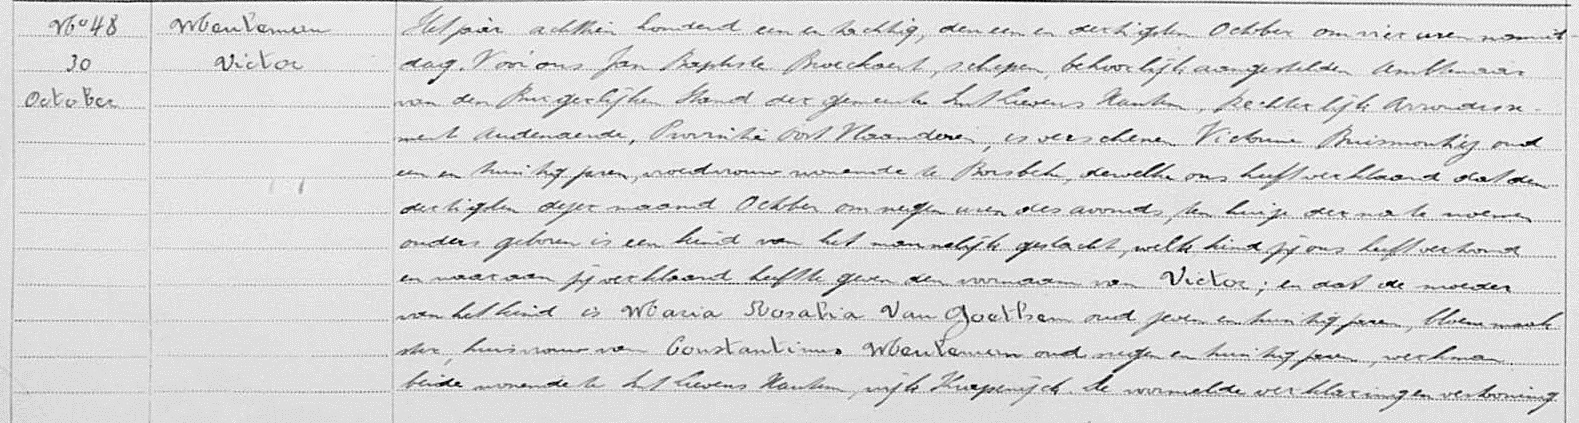 No 48
30
October
Meuleman
Victor
Het jaar achttien honderd een en tachtig, den een en dertigsten October om vier uren namid-
dag. Voor ons Jan Baptiste Broeckaert, schepen, behoorlijk aangestelden Ambtenaar
van den Burgerlijken Stand der gemeente Sint Lievens Hautem, Rechterlijk Arrondisse-
ment Audenaerde, Provintie Oost Vlaanderen, is verschenen Victorine oud
een en twintig jaren, vroedvrouw wonende te Borsbeke, dewelke ons heeft verklaard dat den
dertigsten dezer maand October om negen uren des avonds, ten huize der na te noemen
ouders geboren is een kind van het mannelijk geslacht, welk kind zij ons heeft vertoond
en waaraan zij verklaard heeft te geven den voornaam van Victor; en dat de moeder
van het kind is Maria Rosalia Van Goethem oud zeven en twintig jaren,
huisvrouw van Constantinus Meuleman oud negen en twintig jaren, werkman
beide wonende te Sint Lievens Hautem, wijk De voormelde verklaring en vertooning